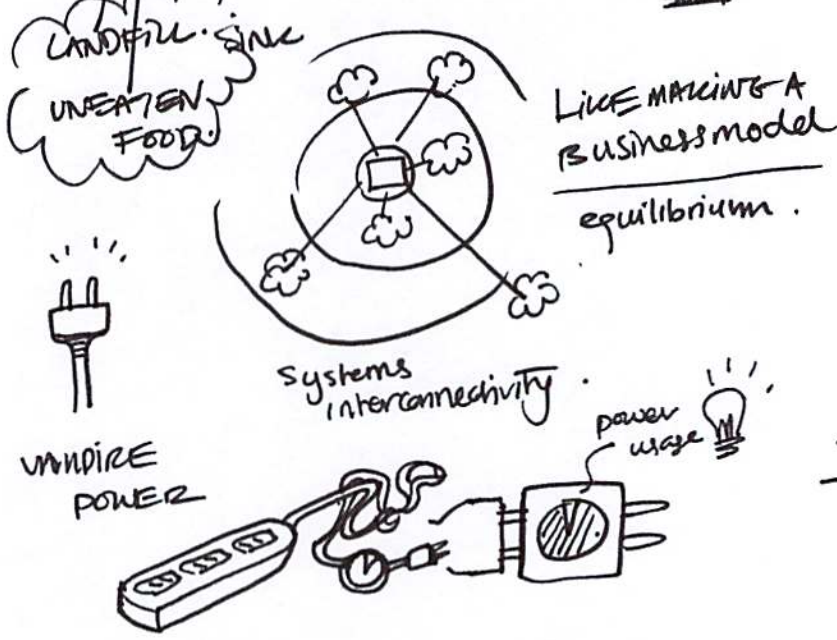 LANDFILL. SINK
UNEATEN
FOOD.
LIKE MAKING A
Business model
equilibrium.
Systems
interconnectivity.
power
usage
VAMPIRE
POWER